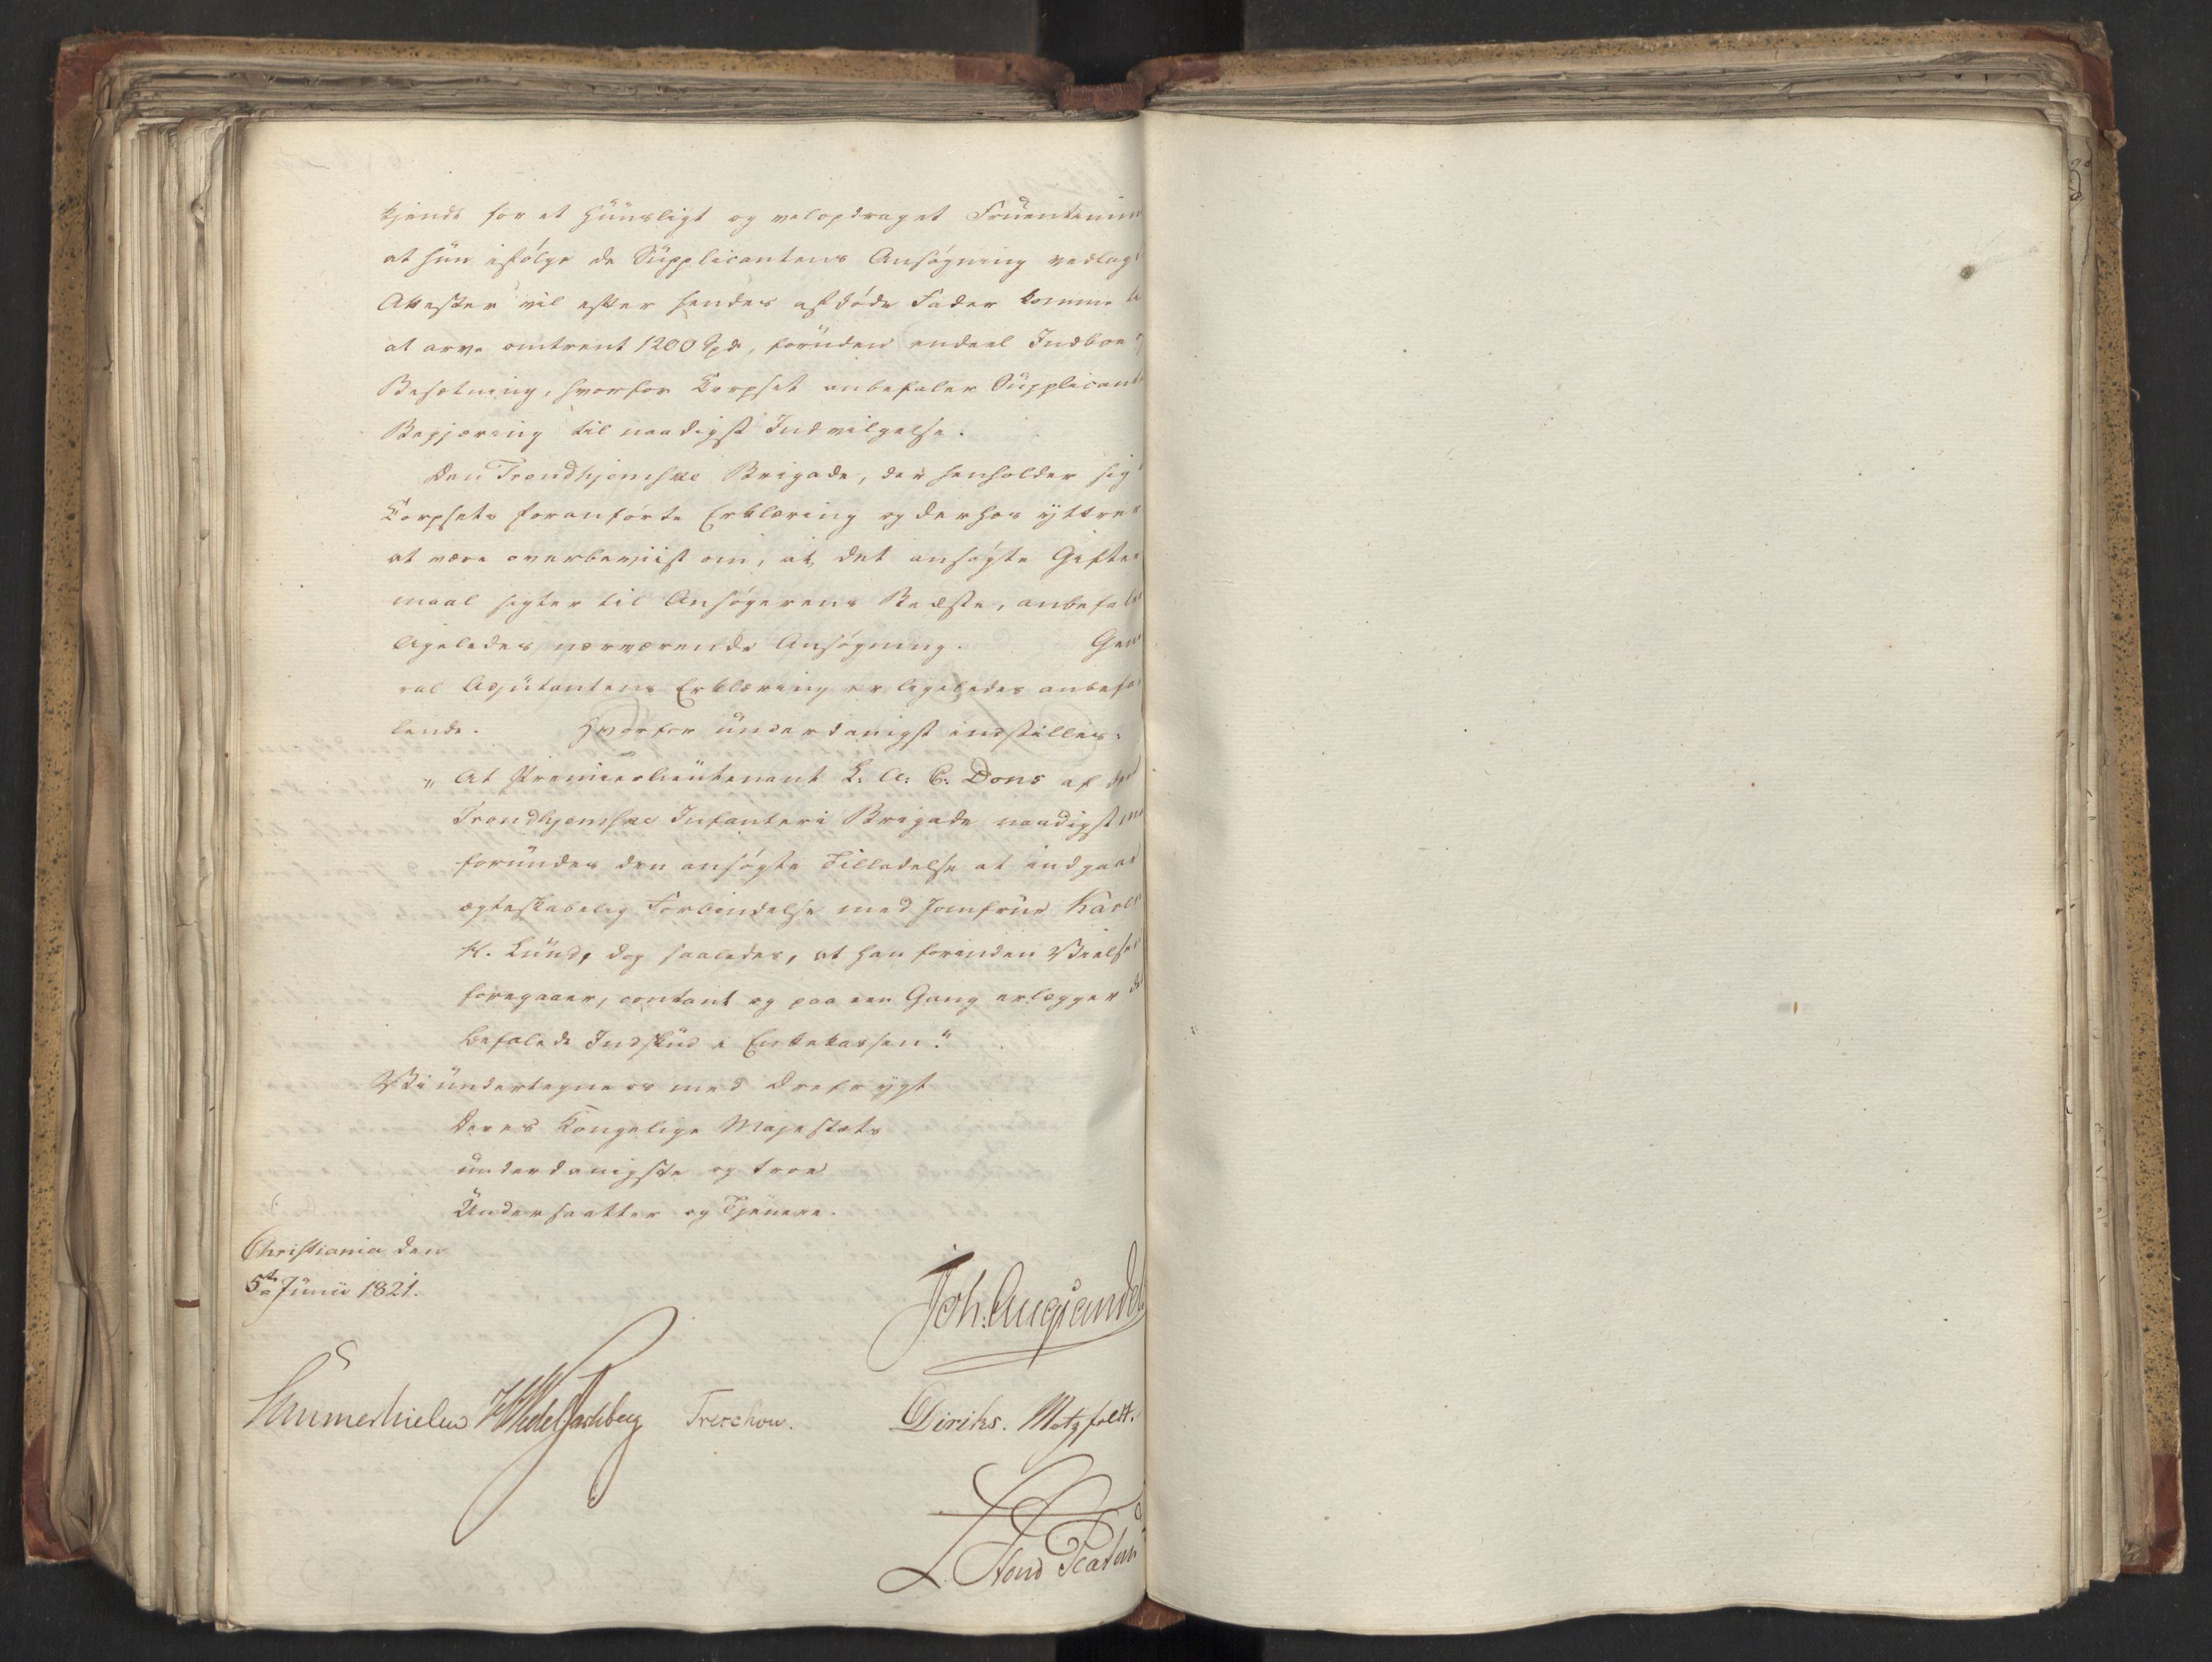 kjendt for et huusligt og velopdraget Fruentimm
at hun ifölge de Supplicantens Ansögning vedlagt
Attester vil efter hendes afdöde Fader komme
at arve omtrent 1200 Spd, foruden endeel Indboe
Besætning, hvorfor Corpset anbefaler Supplicant
Begjæring til naadigst Indvilgelse.
Den Trondhjemske Brigade, der henholder sig
Corpsets foranförte Erklæring og derhos yttrer
at være overbeviist om, at det ansögte Gifter
maal sigter til Ansögerens Bedste, anbefaler
ligeledes nærværende Ansögning. Gene
ral Adjutantens Erklæring er ligeledes anbefa
lende. Hvorfor underdanigst indstilles:
"At Premierlieutenant L: A: C: Dons af den
Trondhjemske Infanteri Brigade naadigst
forundes den ansögte Tilladelse at indgaae
ægteskabelig Forbindelse med Jomfrue Karen
H. Lund, dog saaledes, at han forinden Vielsen
foregaaer, contant og paa een Gang erlægger
befalede Indskud i Enkekassen."
Vi undertegne os med Drefrygt
Deres Kongelige Majestæts
underdanigste og troe
Undersaatter og Tjenere.
Christiania den
5te Junii 1821.
Joh. Aug. Sandels
Sommerhielm HWedel Jarlsberg Treschow. Diriks. Motzfeldt.